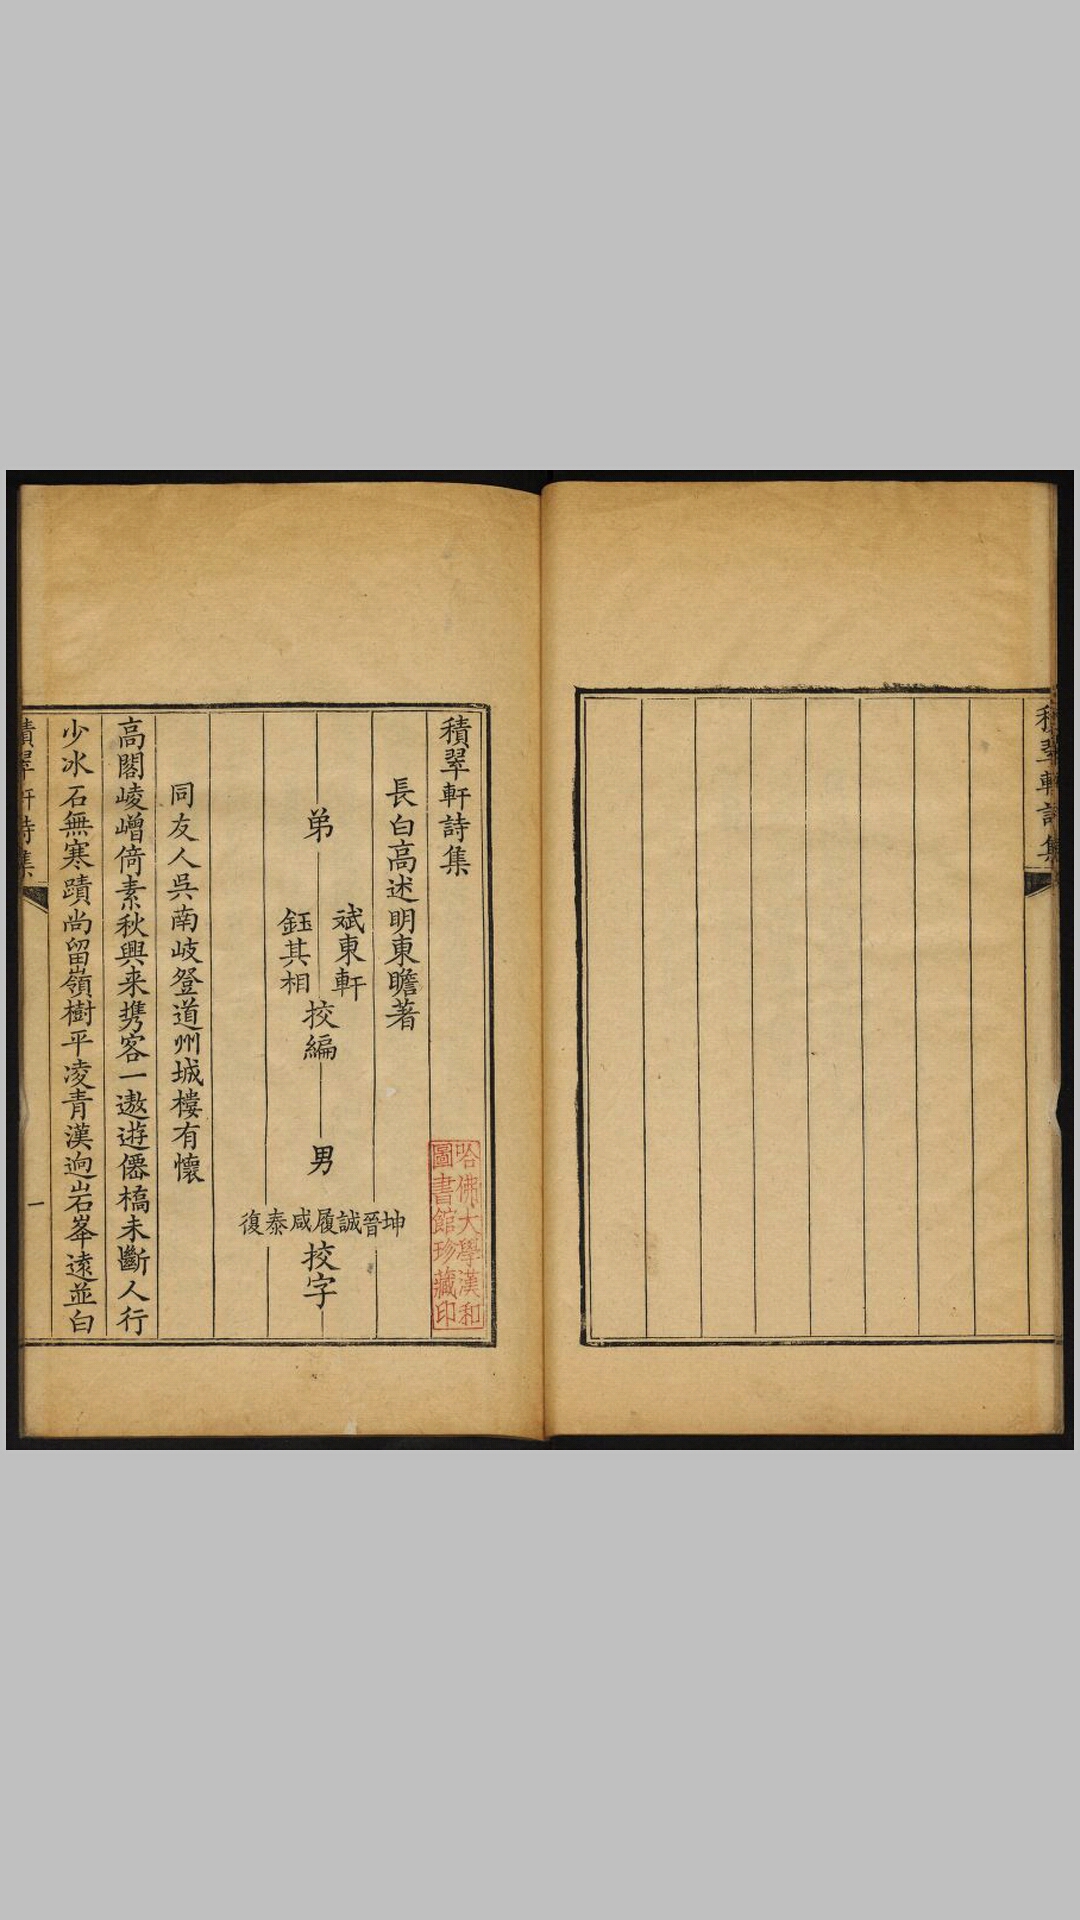 積翠軒詩集
積翠軒詩集
長白高述明東瞻著
弟
斌東軒
鈺其相
挍編
男
坤晉誠履咸泰復
挍字
同友人吳南岐登道州城樓有懷
高閣崚嶒倚素秋興来携客一遨遊僊橋未斷人行
少冰石無寒蹟尚留嶺樹平凌青漢逈岩峯遠並白
積翠軒詩集
一
哈佛大學漢和
圖書館珍藏印